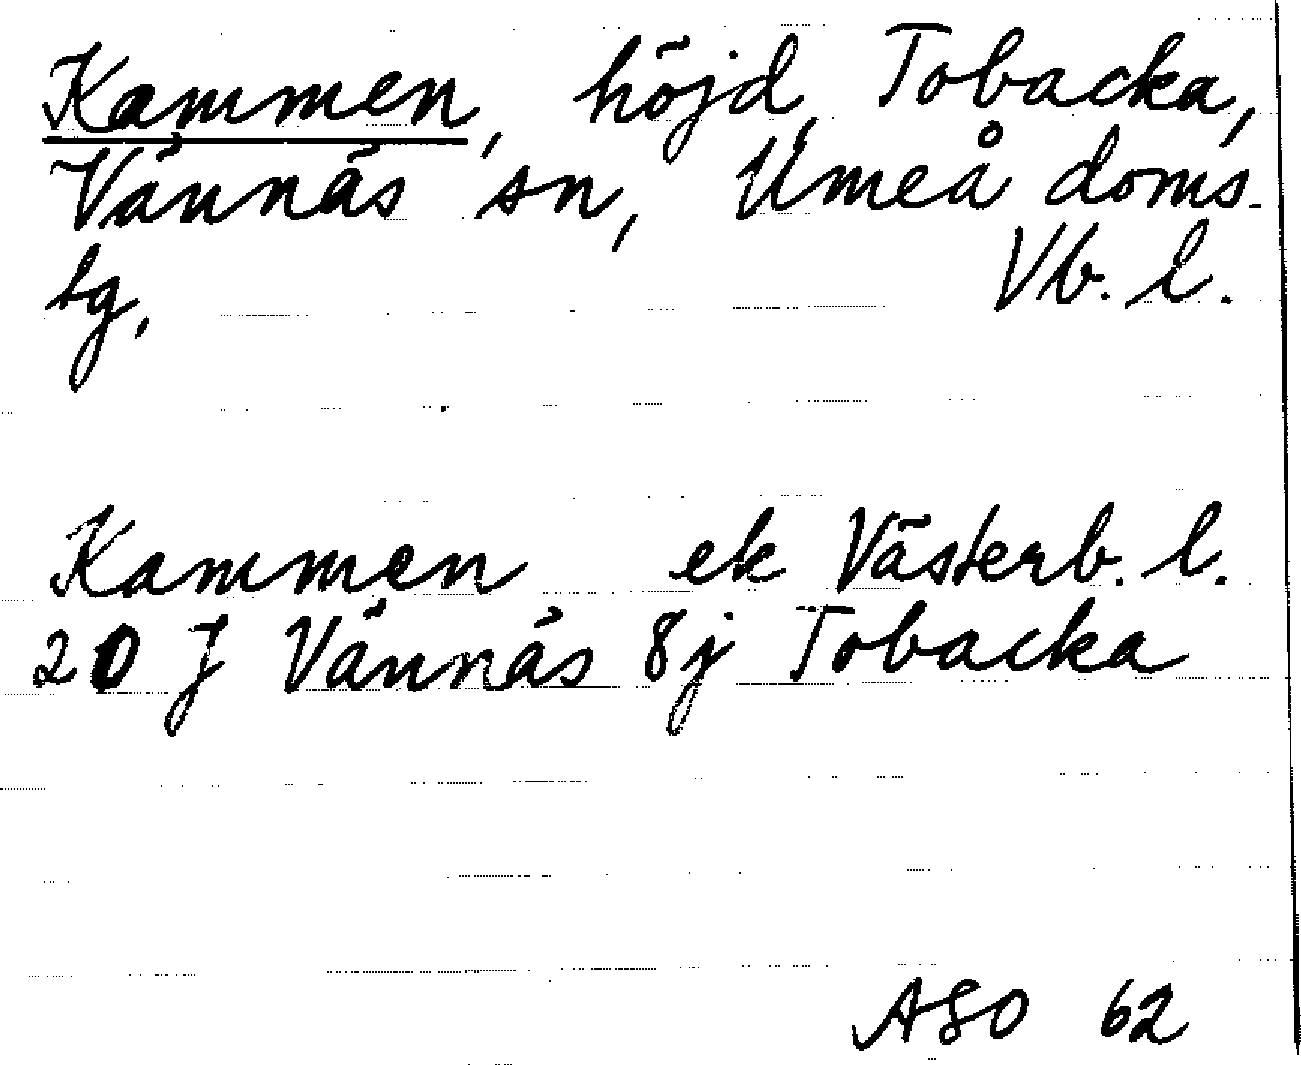 Kammen, höjd, Tobacka,
Vännäs sn, Umeå doms-
sg, Vb. l.
Kammen ek Västerb. l.
20 J Vännäs 8j Tobacka
ASO 62